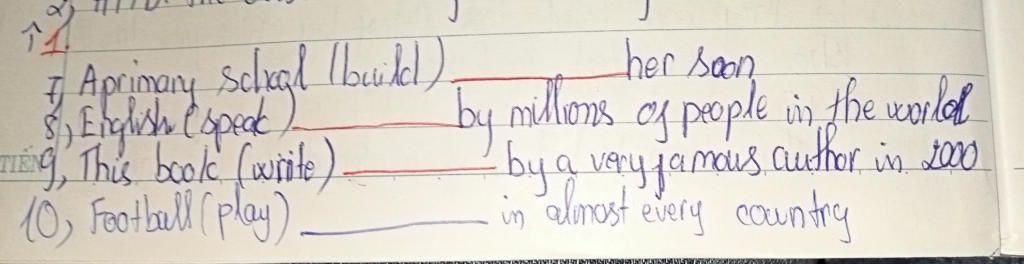 ↑ 1
7, A primary school (build) __________ her soon
8, English (speak) __________ by millions of people in the world
TIẾNG
9, This book (write) __________ by a very famous author in 2000
10, Football (play) __________ in almost every country